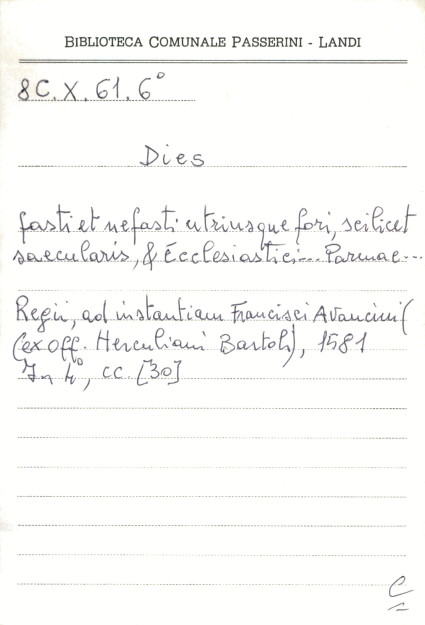 BIBLIOTECA COMUNALE PASSERINI - LANDI
8C.X.61.6°
Dies
fasti et nefasti utriusque fori, scilicet
saecularis, & Ecclesiastici... Parmae...
Regii, ad instantiam Francisci Avancini (
(ex off. Herculiani Bartoli), 1581
In 4°, cc. [30]
C